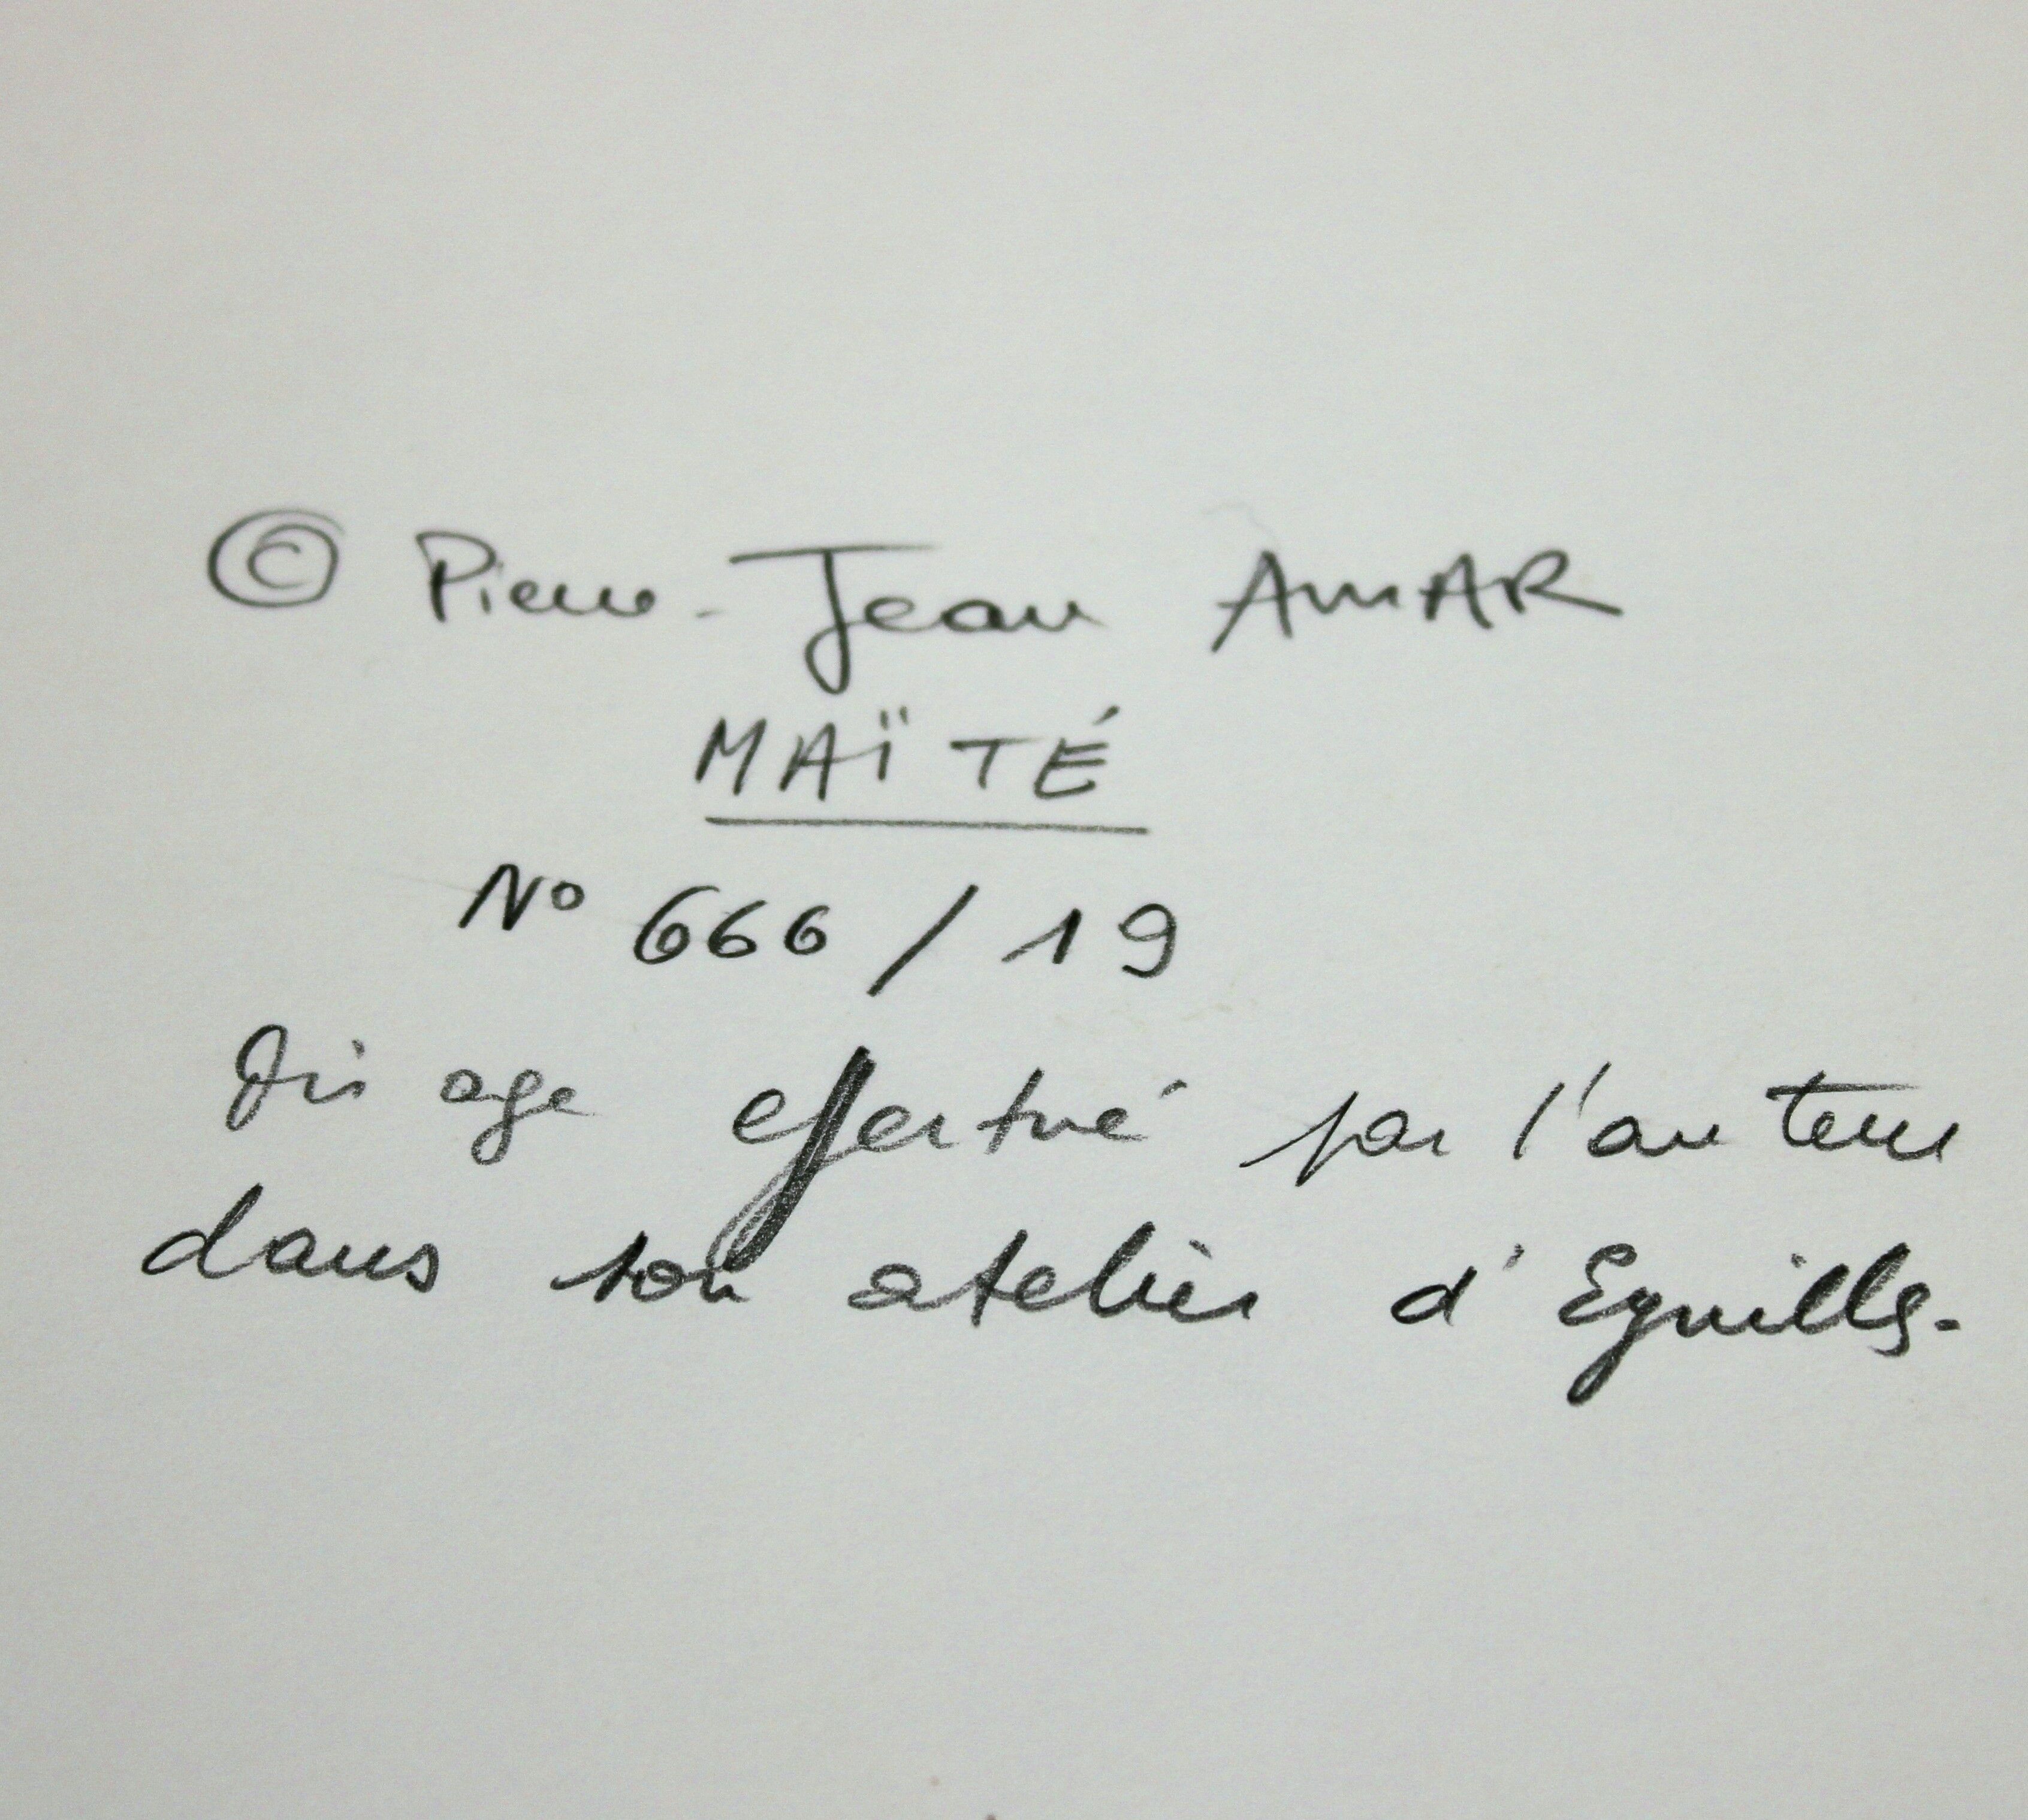 © Pierre-Jean AMAR
MAÏTÉ
N° 666 / 19
Tirage effectué par l'auteur
dans son atelier d'Eguilles.